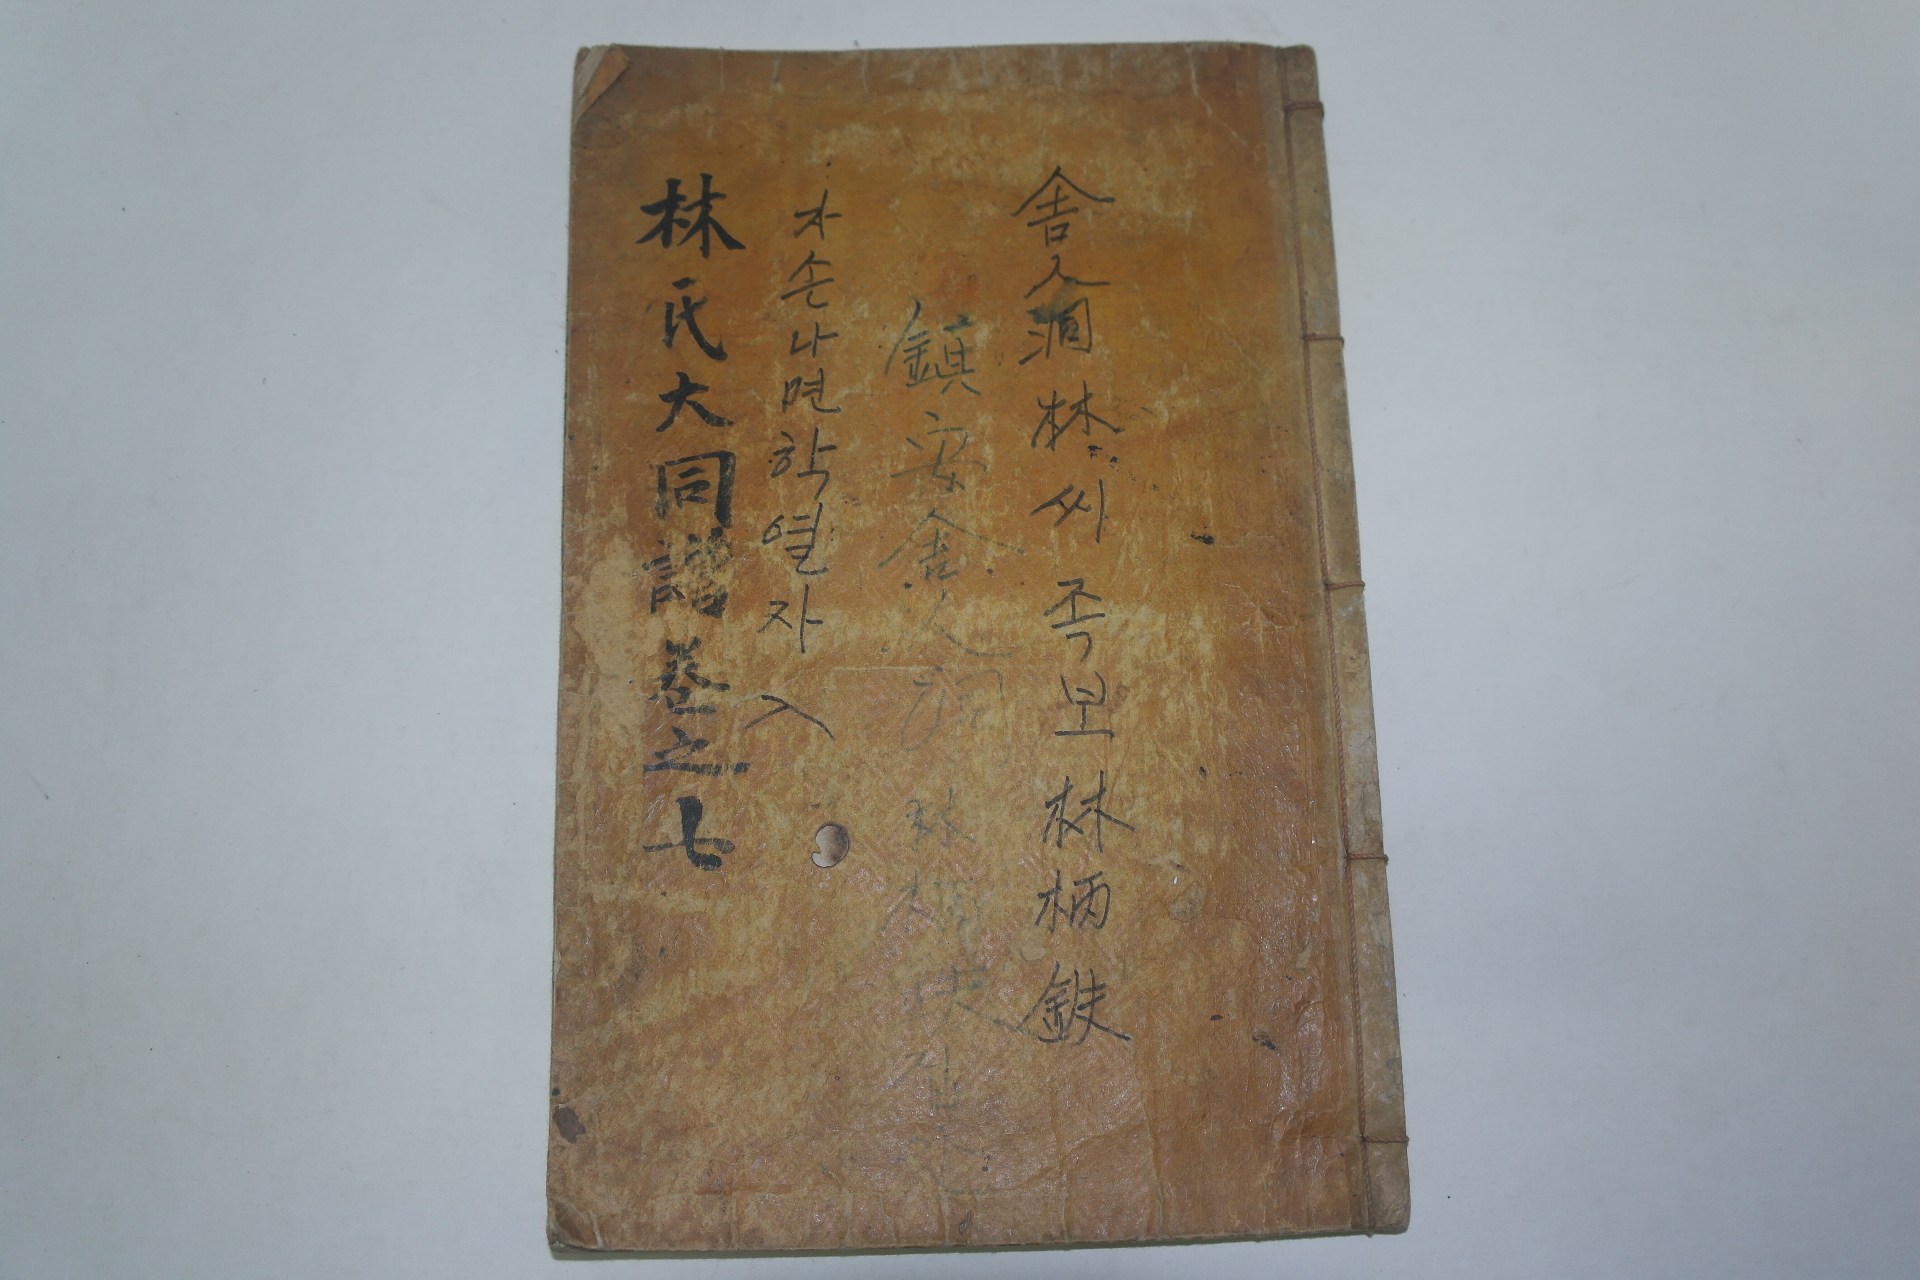 舍人洞林씨족보林柄鉄
鎭安舍人洞林柄
자손나면학열자入
林氏大同譜卷之七